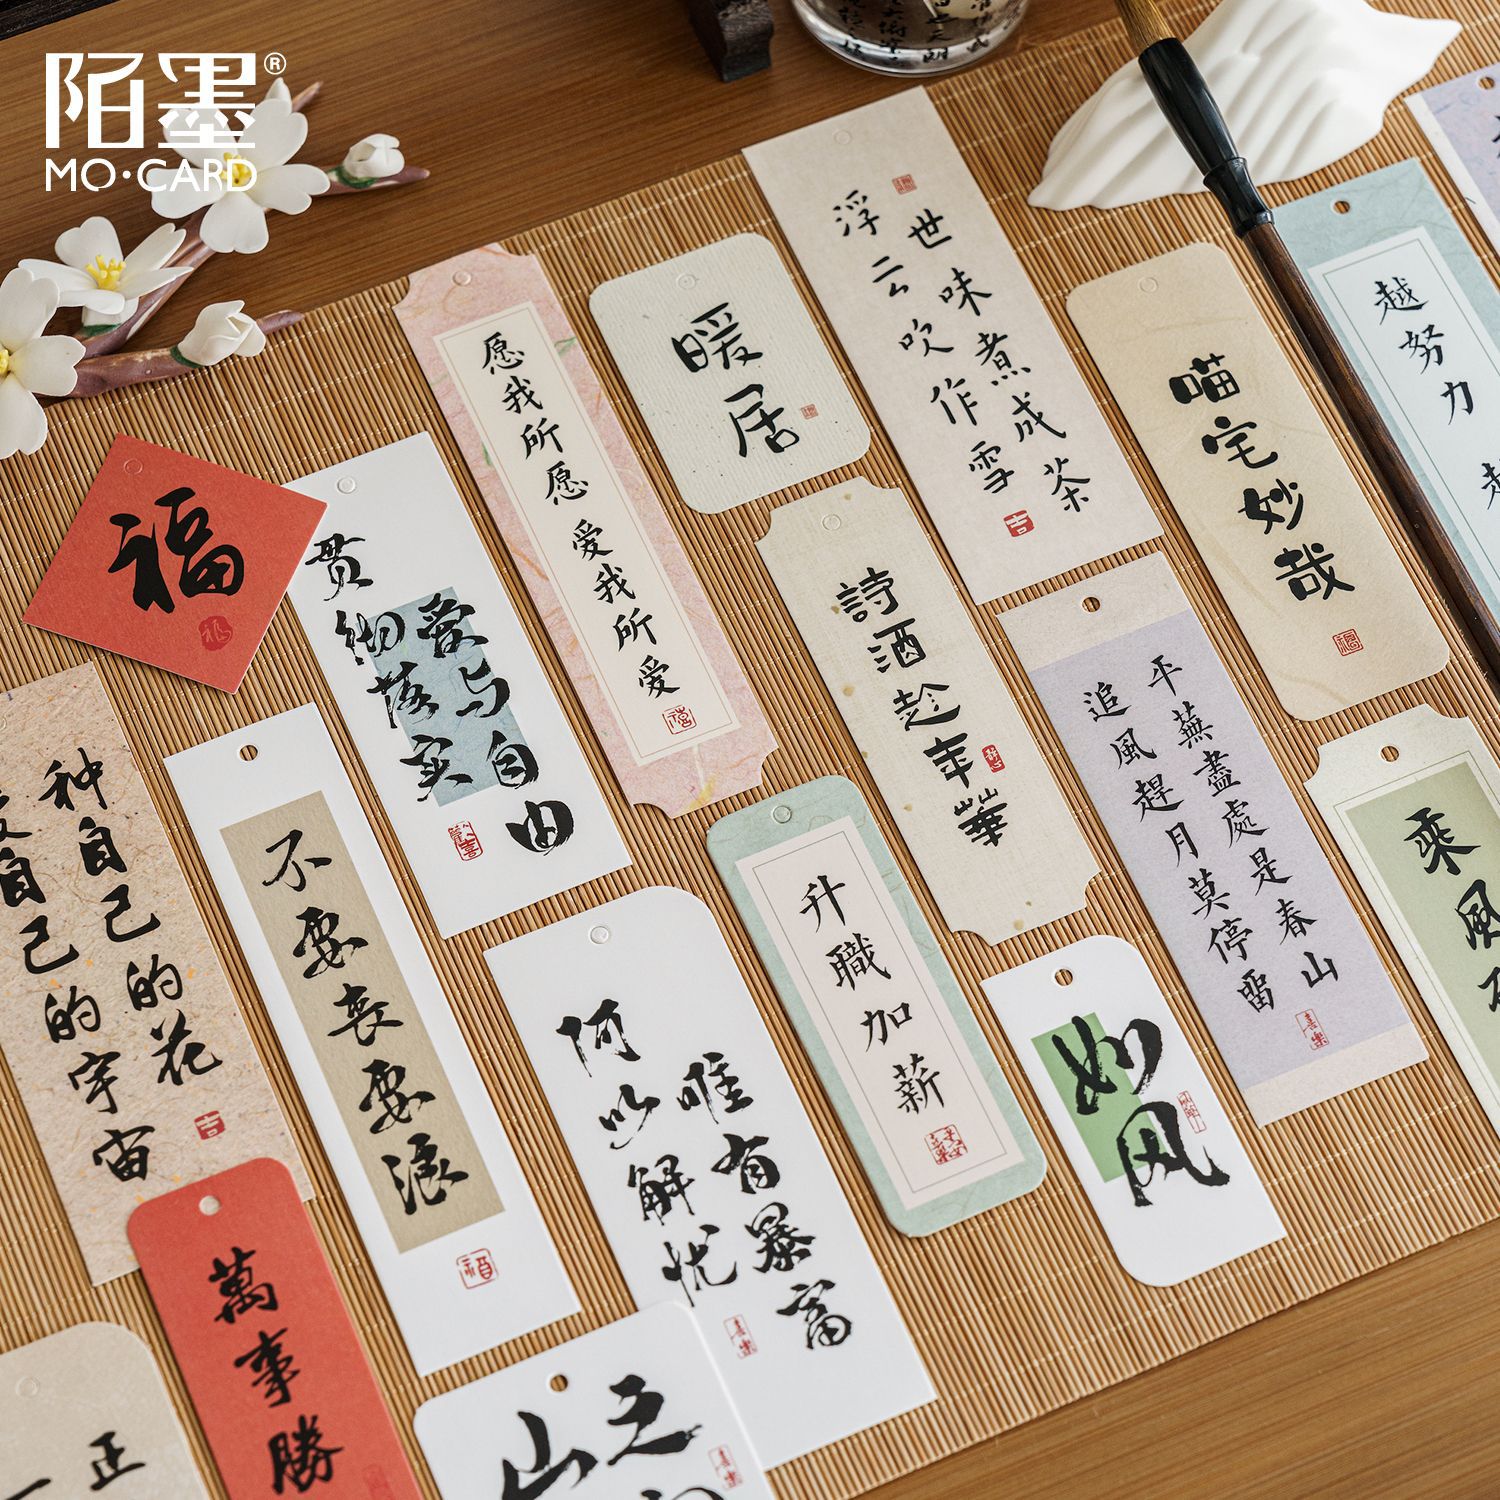 陌墨®
MO·CARD
浮云吹作雪
世味煮成茶
愿我所愿 爱我所爱
暖居
喵宅妙哉
越努力 越
福
贯彻落实
爱与自由
詩酒趁年華
平蕪盡處是春山
追風趕月莫停留
乘風
种自己的花
自己的宇宙
不要丧要浪
升職加薪
如风
何以解忧
唯有暴富
萬事勝
山
之
正
一
吉
吉